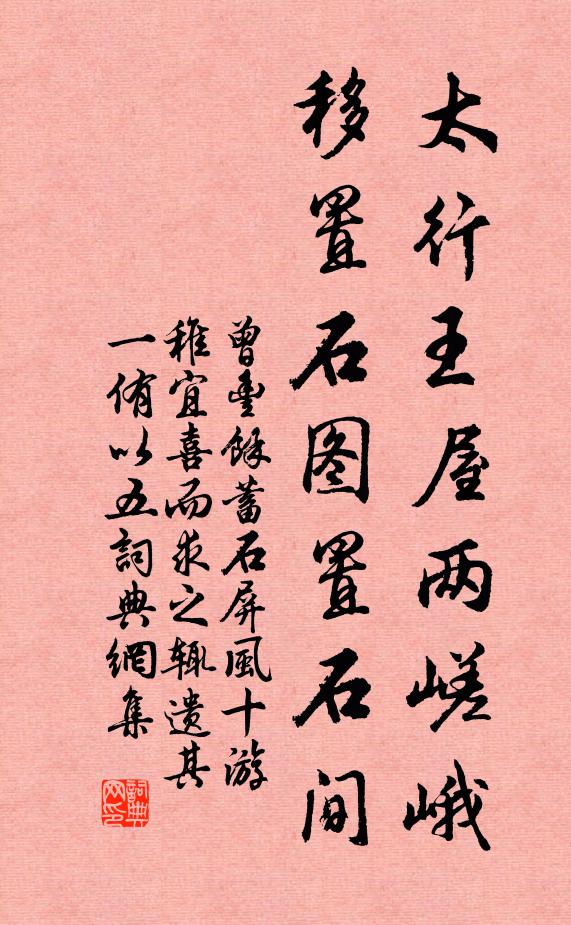 太行王屋两嵯峨
移置石图置石间
曾丰余蓄石屏风十游
稚宜喜而求之辄遗其
一侑以五詞典網集
詞典
网印